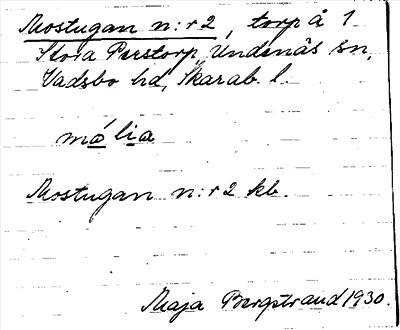 Mostugan n:r 2, torp å 1
Stora Perstorp, Undenäs sn,
Vadsbo hd, Skarab. l.
målia
Mostugan n:r 2 kb.
Maja Bergstrand 1930.